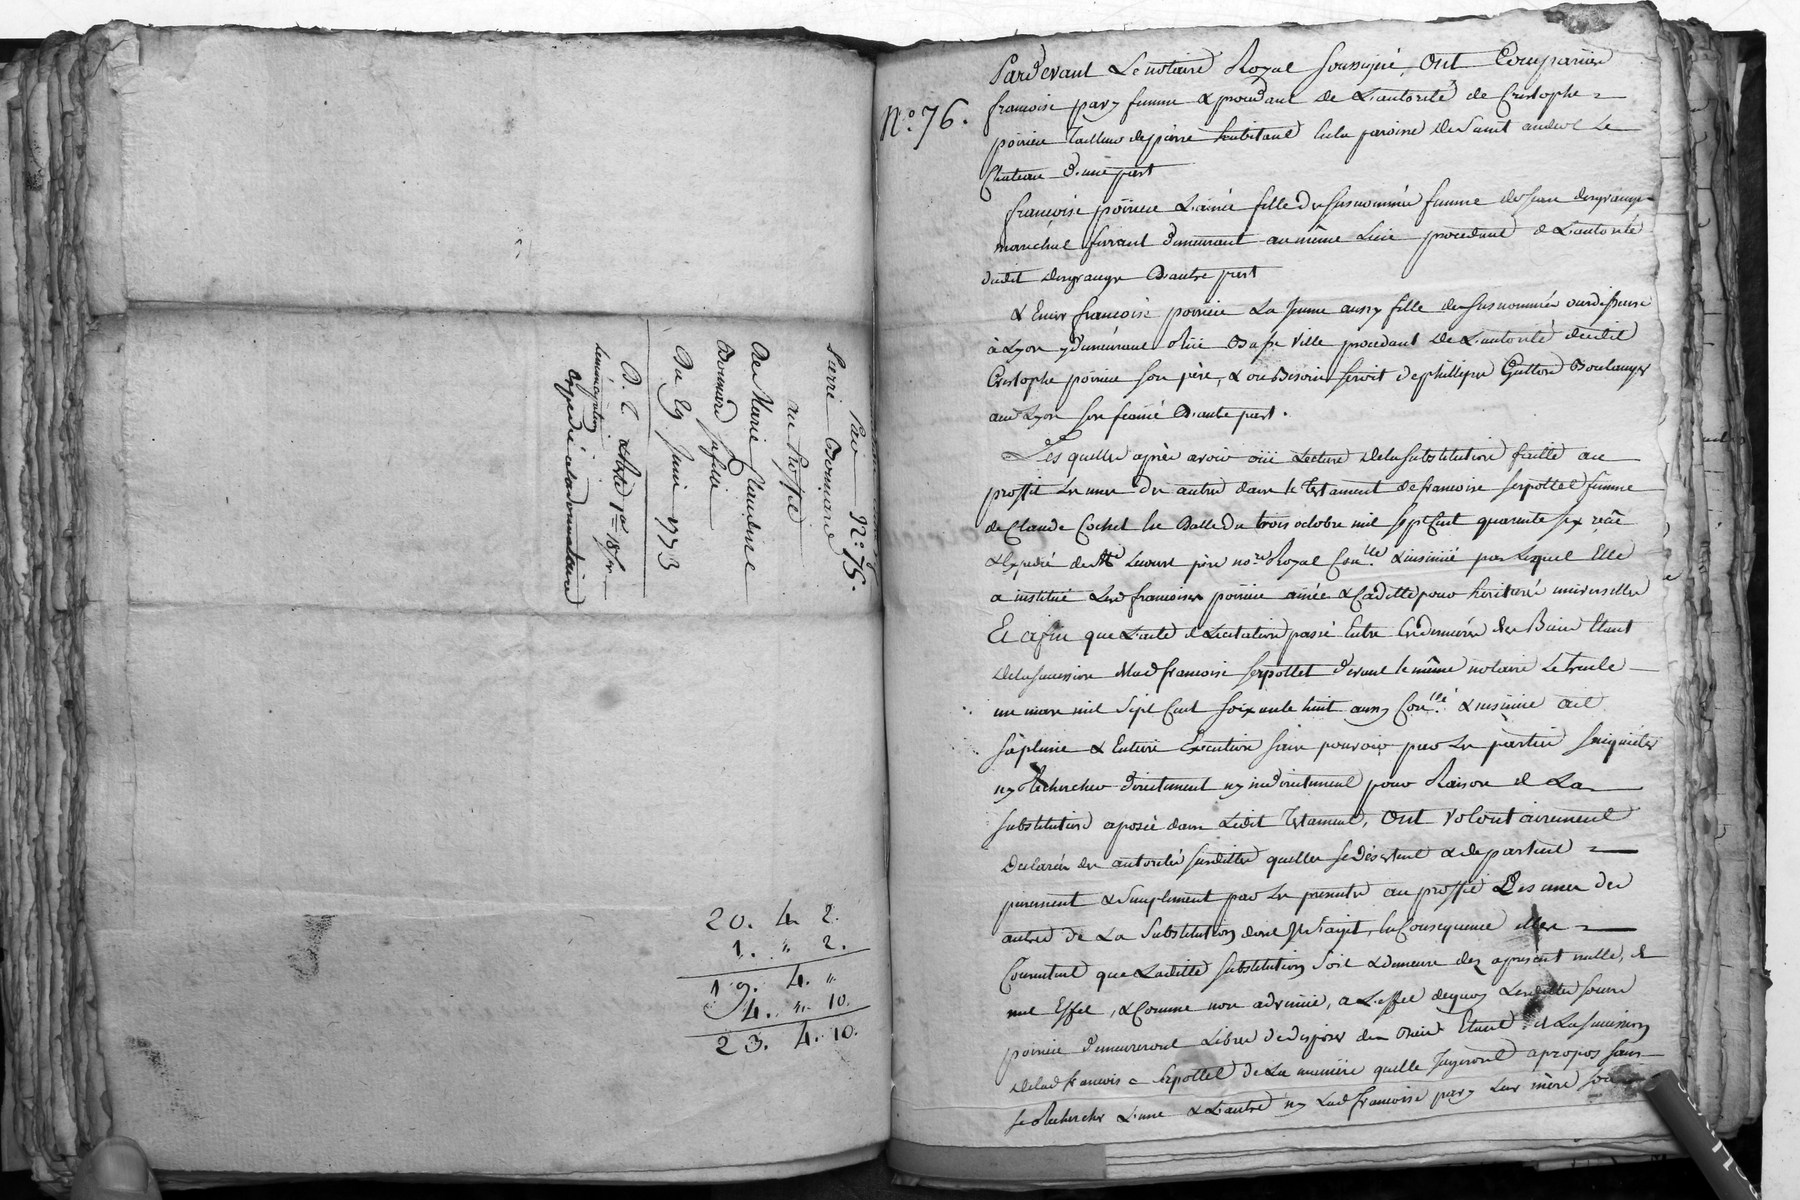 N.º 75.
Par
Pierre Bonnard
au Proffit
De Marie Claudine
Bonnard sa fille
Du 29 Juin 1773
expedié à la donnataire
20. 4. 2.
1. " 2.
19. 4. "
4. " 10.
23. 4. 10.
N.º 76.
Pardevant Le notaire Royal soussigné, Ont Comparües
francoise pary femme & procedant de L'autorité de Cristophe =
poiriere Tailleur de pierre habitant en la paroisse de Saint andeol Le
Chateau d'une part
francoise poiriere L'ainée fille des susnommés femme de Jean desgrange
marechal ferrant demeurant au même Lieu procedant de L'autorité
dudit desgrange D'autre part
& Encor francoise poiriere La Jeune aussy fille des susnommés ourdisseuse
à Lyon y demeurant rüe Basse Ville procedant de L'autorité dudit
Cristophe poiriere son père, & ou Besoin seroit de phillipe Gutton Boulanger
aud. Lyon son fiancé D'autre part.
Les quelles après avoir oüi Lecture de la substitution faitte au
proffit Les unes des autres dans le Testament de francoise serpollet femme
de Claude Cochet en Datte du trois octobre mil sept Cent quarante six recu
& Expedié de Me père no.re Royal Con.llé & insinüé par Lequel Elle
a institué Lesd. francoises poiriere ainée & Cadette pour heritieres universelles
Et afin que L'acte de Licitation passé Entre les des Biens Etant
de la succession de lad. francoise serpollet devant le même notaire Le trente
un mars mil sept Cent soixante huit aussy Con.llé & insinüé ait
sa pleine & Entiere Execution sans pouvoir par Les parties s'inquieter
ny Rechercher directement ny indirectement pour Raison de La
substitution aposée dans Ledit Testament, Ont volontairement
declarées des autorités susdittes quelles se désistent & departent =
purement & simplement par Les presentes au proffit Les unes des
autres de La substitution dont Il s'agit, En Consequence elles =
Consentent que Laditte substitution soit & demeure dez apresent nulle, de
nul Effet, & Comme non advenüe, a L'effet dequoy Lesdittes sœurs
poiriere demeureront Libres de disposer des Biens Etant de La succession
de lad. francoise serpollet de La maniere quelle Jugeront apropos sans
se Rechercher L'une & L'autre ny Lad. francoise pary Leur mère